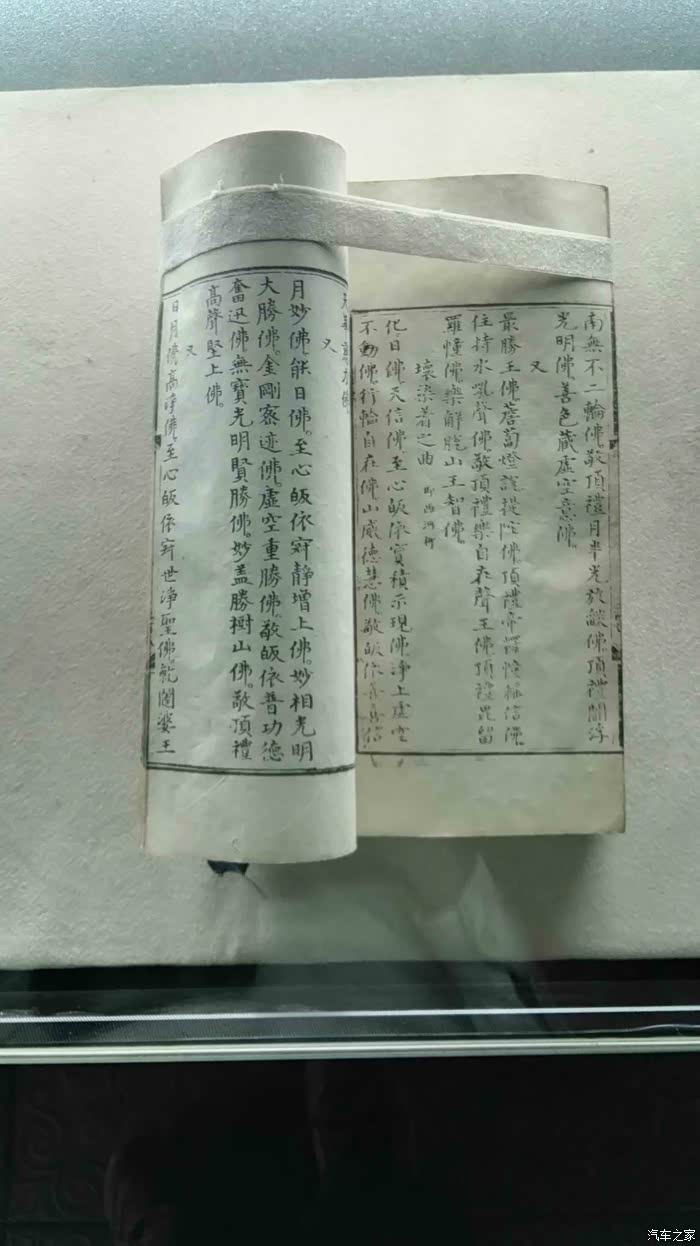 南無不二輪佛。敬頂禮月半光放燄佛。頂禮閻浮
光明佛。善色藏虛空意佛。
又
最勝王佛。薝蔔燈諟提陀佛。頂禮帝釋憧
住持水吼聲佛。敬頂禮樂自在聲王佛。頂禮毘留
羅憧佛。樂解脫山王智佛。
壞染著之曲 即西河柳
化日佛。天信佛。至心皈依寶積示現佛。淨上虛空
不動佛。行輪自在佛。山威德慧佛。敬皈依
又
月妙佛。能日佛。至心皈依寂靜增上佛。妙相光明
大勝佛。金剛密迹佛。虛空重勝佛。敬皈依普功德
奮迅佛。無寶光明賢勝佛。妙盖勝樹山佛。敬頂禮
高聲堅上佛。
又
日月 高 佛。至心皈依寂世淨聖佛。乾闥婆王
汽车之家